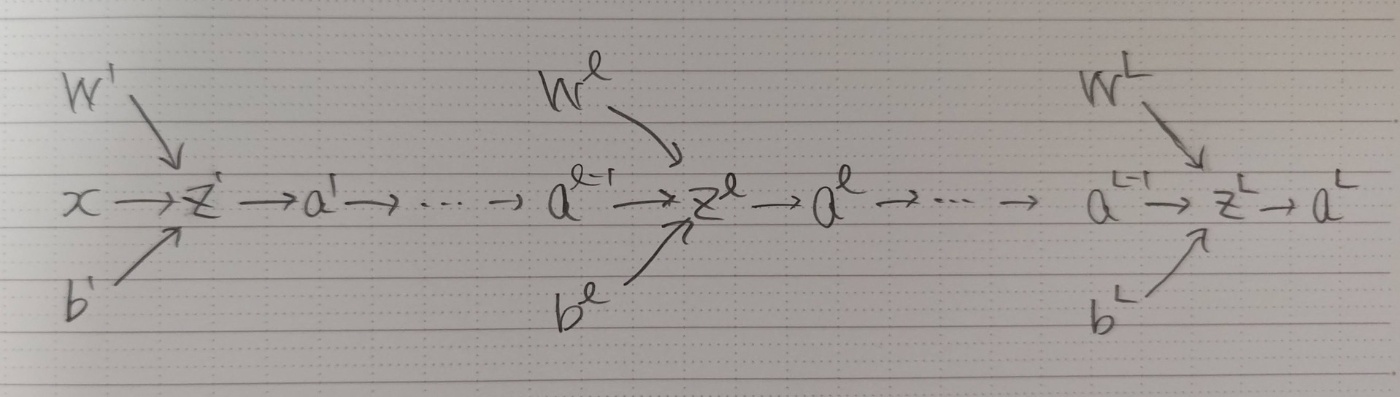 W¹ Wˡ Wᴸ
x → z¹ → a¹ → ... → aˡ⁻¹ → zˡ → aˡ → ... → aᴸ⁻¹ → zᴸ → aᴸ
b¹ bˡ bᴸ